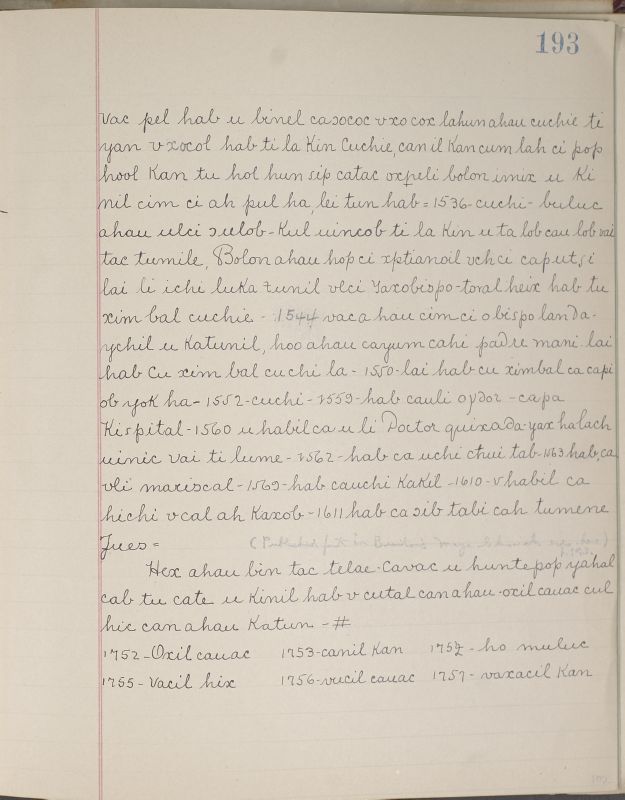 193
vac pel hab u binel caɔococ v xo cox lahun ahau cuchie ti
yan v xocol hab ti la Kin Cuchie, canil Kan cum lah ci pop
hool Kan tu hol hun sip catac oxpeli bolon imix u Ki
nil cim ci ah pul ha, lei tun hab = 1536 - cuchi - buluc
ahau ulci ɔulob - Kul uincob ti la Kin u ta lob cau lob vai
tac tumile, Bolon ahau hop ci xptianoil vchci caput,si
lai li ichi luKa tunil vlci yax obispo - toral heix hab tu
xim bal cuchie - 1544 vac a hau cim ci obispo landa -
ychil u Katunil, hoo ahau cayum cahi padre mani - lai
hab Cu xim bal cuchi la - 1550 - lai hab cu ximbal ca capi
ob yoK ha - 1552 - cuchi - 1559 - hab cauli oydor - capa
Kispital - 1560 u habil ca u li Doctor quixada - yax halach
uinic vai ti lume - 1562 - hab ca uchi chui tab - 1563 hab, ca
vli mariscal - 1569 - hab cauchi KaKil - 1610 - v habil ca
hichi v cal ah Kaxob - 1611 hab ca ɔib tabi cah tumene
Jues =
(Published
Hex ahau bin tac telae. Cavac u huntepop yahal
cab tu cate u Kinil hab v cutal can ahau. oxil cauac cul
hic can ahau Katun - #
1752 - Oxil cauac 1753 - canil Kan 1754 - ho muluc
1755 - Vacil hix 1756 - vucil cauac 1757 - vaxacil Kan